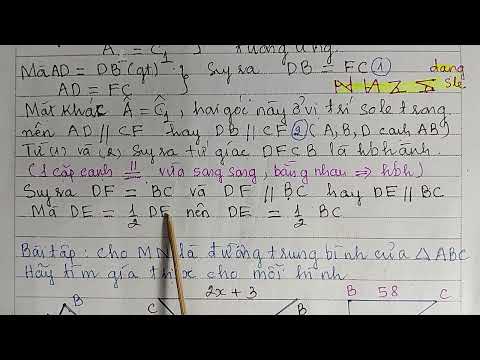 Â₁ = Ĉ₁ } tương ứng.
Mà AD = DB (gt) } Suy ra DB = FC ① dạng
AD = FC sle.
Mặt khác Â = Ĉ₁, hai góc này ở vị trí sole trong
nên AD // CF hay DB // CF ② (A, B, D cạnh AB)
Từ (1) và (2) suy ra tứ giác DFCB là hbhành
(1 cặp cạnh // vừa song song, bằng nhau ⇒ hbh)
Suy ra DF = BC và DF // BC hay DE // BC
Mà DE = 1/2 DF nên DE = 1/2 BC
Bài tập : cho MN là đường trung bình của △ ABC
Hãy tìm giá trị x cho mỗi hình
B C 2x + 3 B 58 C